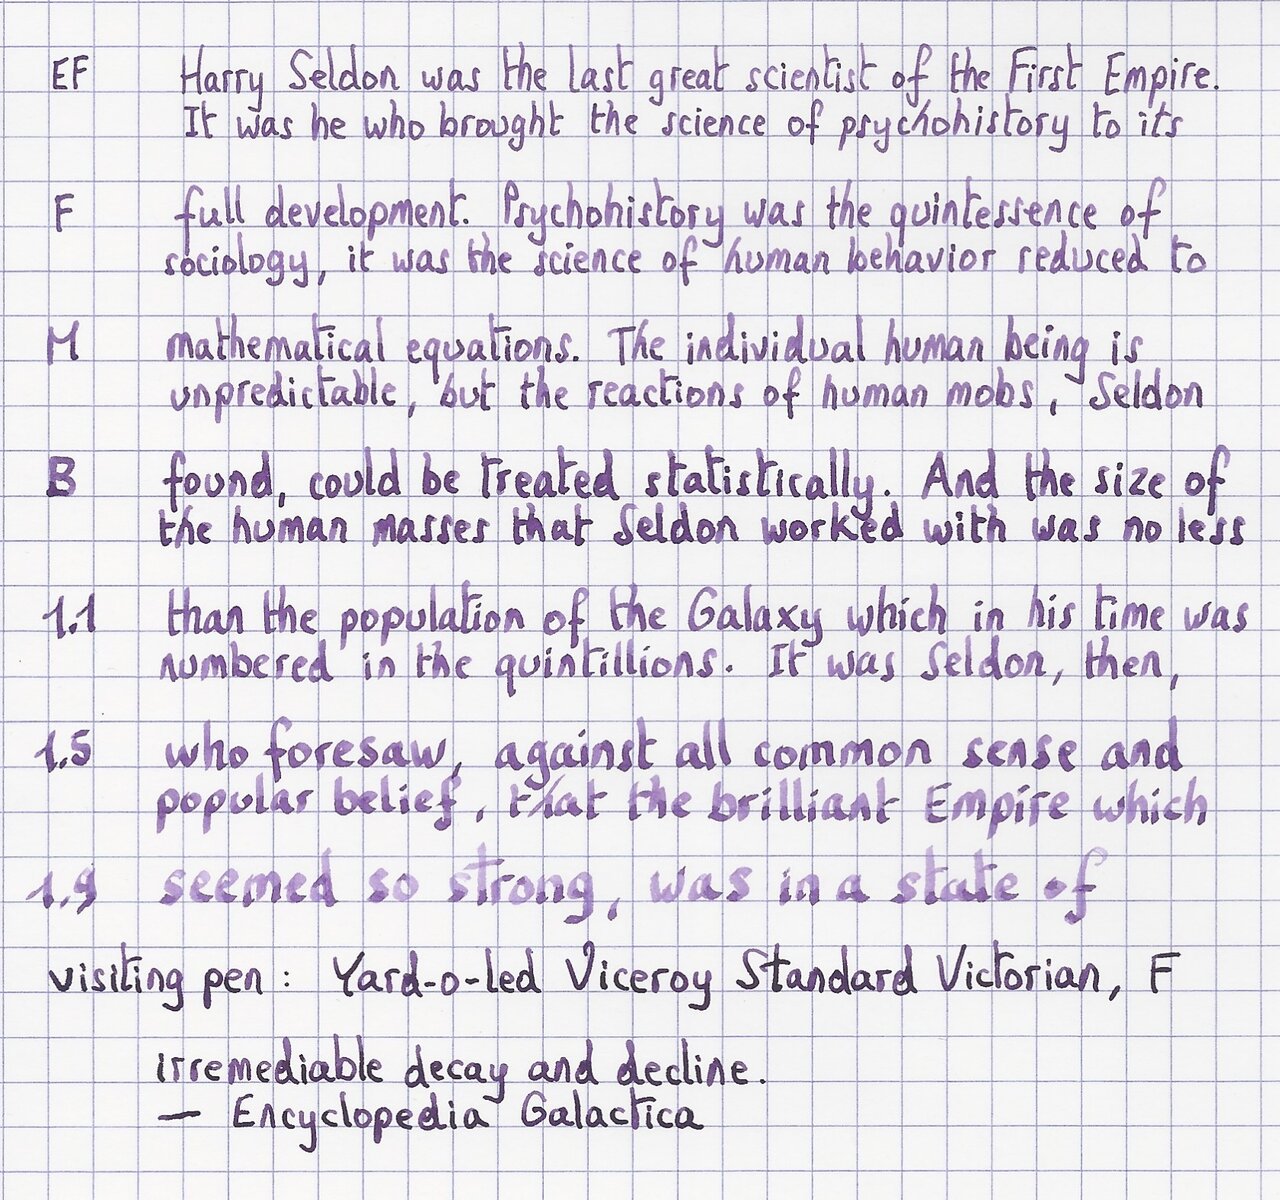 EF Harry Seldon was the last great scientist of the First Empire.
It was he who brought the science of psychohistory to its
F full development. Psychohistory was the quintessence of
sociology, it was the science of human behavior reduced to
M mathematical equations. The individual human being is
unpredictable, but the reactions of human mobs, Seldon
B found, could be treated statistically. And the size of
the human masses that Seldon worked with was no less
1.1 than the population of the Galaxy which in his time was
numbered in the quintillions. It was Seldon, then,
1.5 who foresaw, against all common sense and
popular belief, that the brilliant Empire which
1.9 seemed so strong, was in a state of
visiting pen: Yard-o-led Viceroy Standard Victorian, F
irremediable decay and decline.
— Encyclopedia Galactica